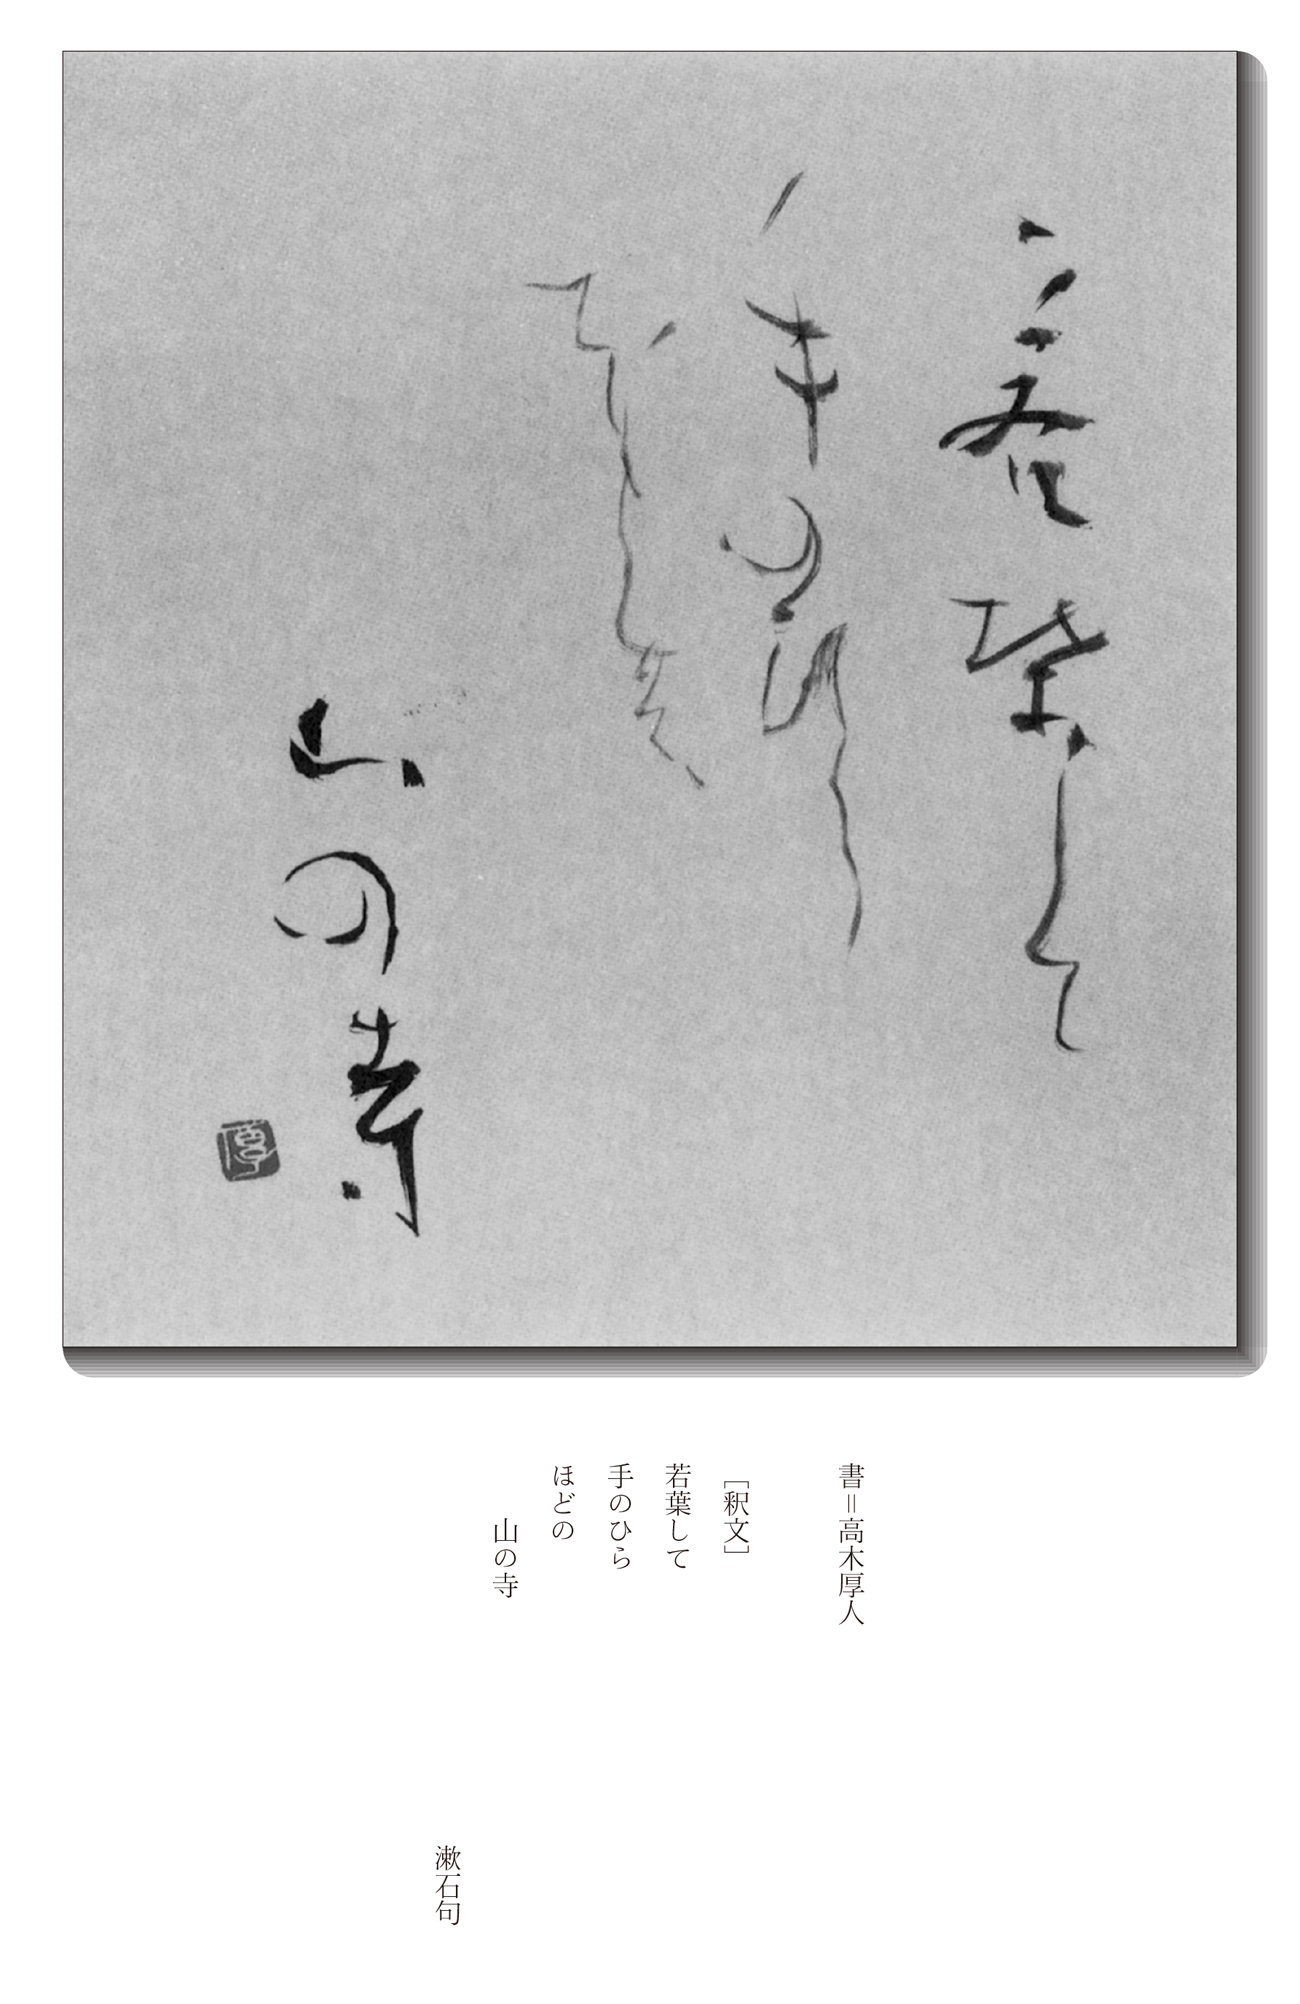 若葉して
手のひら
ほどの
山の寺
書＝高木厚人
［釈文］
若葉して
手のひら
ほどの
山の寺
漱石句